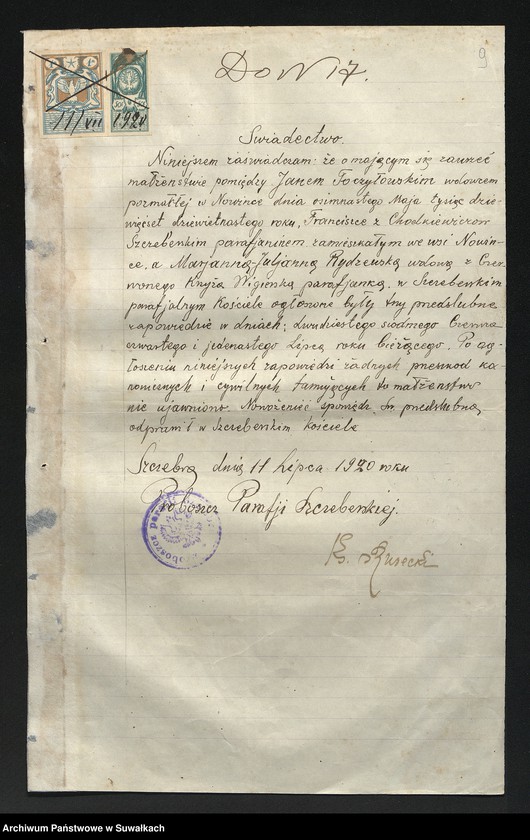 9
Do N 17.
11/VII 1920
Świadectwo.
Niniejszem zaświadczam: że o mającym się zawrzeć
małżeństwie pomiędzy Janem Toczyłowskim wdowcem
pozmarłej w Nowince dnia osimnastego Maja tysiąc dzie-
więcset dziewiętnastego roku, Franciszce z Chodkiewiczów
Szczebenskim parafjaninem zamieszkałym we wsi Nowin-
ce, a Marjanną-Juljanną Rydzewską wdową z Czer-
wonego Krzyża Wigierską parafjanką, w Szczebenskim
parafjalnym Kościele ogłoszone były trzy przedslubne
zapowiedzie w dniach: dwudziestego siódmego Czerwca
czwartego i jedenastego Lipca roku bieżącego. Po og-
łoszeniu niniejszych zapowiedzi żadnych przeszkod ka-
nonicznych i cywilnych tamujących to małżenstwo
nie ujawniono. Nowożeniec spowiedź św. przedslubną
odprawił w Szczebenskim Kościele
Szczebra dnia 11 Lipca 1920 roku
Proboszcz Parafji Szczebenskiej.
Ks.
Archiwum Państwowe w Suwałkach